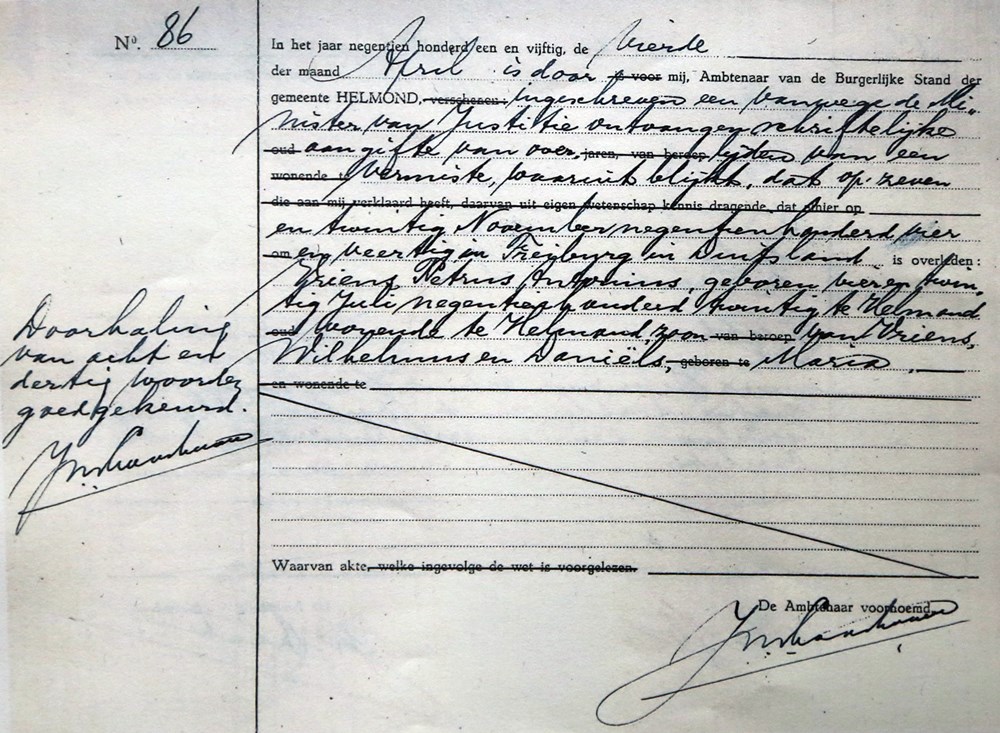 Nº. 86
In het jaar negentien honderd een en vijftig, de vierde
der maand April is door is voor mij, Ambtenaar van de Burgerlijke Stand der
gemeente HELMOND, verschenen: ingeschreven een vanwege de Mi-
nister van Justitie ontvangen schriftelijke
oud aangifte van over jaren, van beroep lijden van een
wonende te vermiste, waaruit blijkt, dat op zeven
die aan mij verklaard heeft, daarvan uit eigen wetenschap kennis dragende, dat alhier op
en twintig November negentienhonderd vier
om en veertig in Freiburg in Duitsland is overleden:
Vriens, Petrus Antonius, geboren vier en twin-
tig Juli negentienhonderd twintig te Helmond
oud wonende te Helmond, zoon van beroep van Vriens,
Wilhelmus en Daniëls, geboren te Maria
en wonende te
Doorhaling
van acht en
dertig woorden
goedgekeurd.
Waarvan akte, welke ingevolge de wet is voorgelezen.
De Ambtenaar voornoemd,